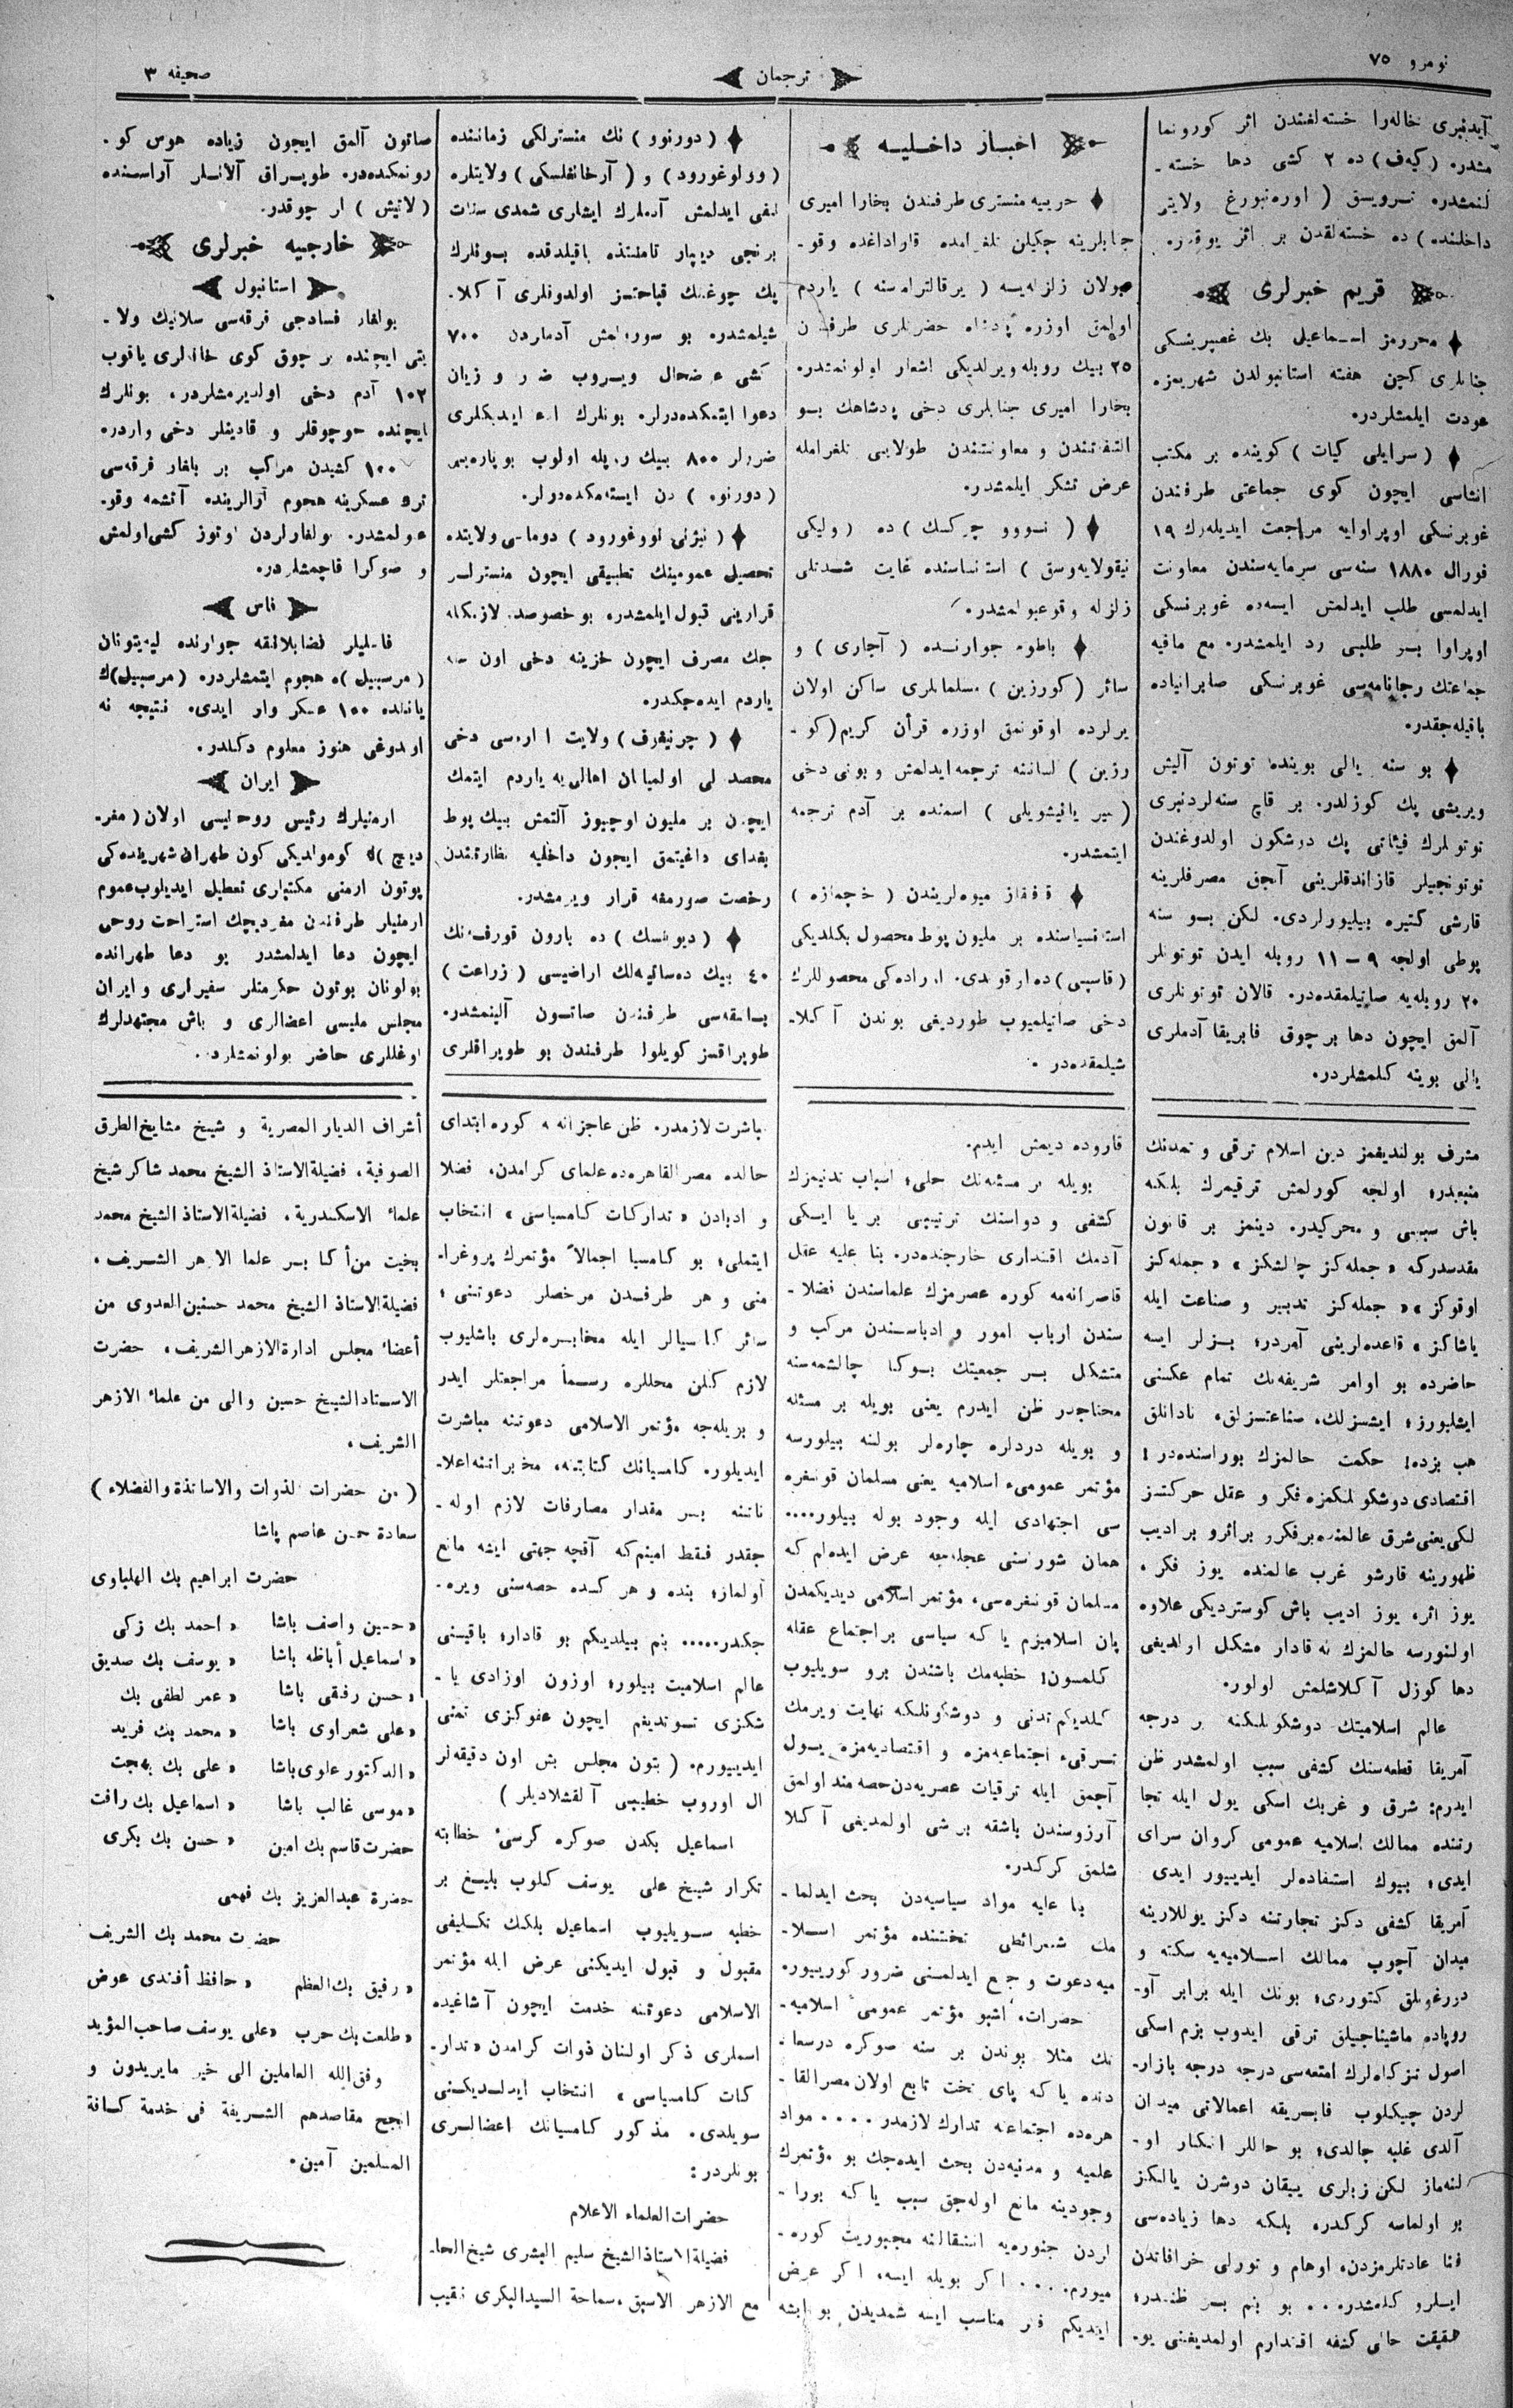 نومرو ٧٥
ترجمان
صحیفه ٣
آیدنبری خاله‌را خسته‌لغندن اثر کورونما
مشدر. (کیه‌ف) ده ٢ کشی دها خسته‌-
لنمشدر. ترویسق (اوره‌نبورغ ولایتی
داخلنده) ده خسته‌لقدن بر اثر یوقدر.
قریم خبرلری
محررمز اسماعیل بك غصپرینسکی
جنابلری کچن هفته استانبولدن شهریمزه
عودت ایلمشلردر.
(سرایلی کیات) کوینده بر مکتب
انشاسی ایچون کوی جماعتی طرفندن
غوبرنسکی اوپراوایه مراجعت ایدیله‌رك ١٩
فورال ١٨٨٠ سنه‌سی سرمایه‌سندن معاونت
ایدلمسی طلب ایدلمش ایسه‌ده غوبرنسکی
اوپراوا بو طلبی رد ایلمشدر. مع مافیه
جماعتك رجانامه‌سی غوبرنسکی صابرانیاده
باقیله‌جقدر.
بو سنه یالی بوینده توتون آلیش
ویریشی پك کوزلدر. بر قاچ سنه‌لردنبری
توتونلرك فیئاتی پك دوشکون اولدوغندن
توتونجیلر قازاندقلرینی آنجق مصرفلرینه
قارشی کتیره بیلیورلردی. لکن بو سنه
پوطی اولجه ٩ – ١١ روبله ایدن توتونلر
٢٠ روبله‌یه صاتیلمقده‌در. قالان توتونلری
آلمق ایچون دها برچوق فابریقا آدملری
یالی بوینه کلمشلردر.
اخبار داخلیه
حربیه منستری طرفندن بخارا امیری
جنابلرینه چکیلن تلغرامده قاراداغده وقو-
عبولان زلزله‌یسه (یرقالترامه‌سنه) یاردم
اولمق اوزره پادشاه حضرتلری طرفندن
٢٥ بیك روبله ویرلدیکی اشعار اولونمشدر.
بخارا امیری جنابلری دخی پادشاهك بو
التفاتندن و معاونتندن طولایی تلغرامله
عرض تشکر ایلمشدر.
(نووو چرکسك) ده (ولیکی
نیقولایه‌وسق) استانساسنده غایت شدتلی
زلزله وقوعبولمشدر.
باطوم جوارنده (آجاری) و
سائر (کورزین) مسلمانلری ساکن اولان
یرلرده اوقونمق اوزره قرآن کریم (کو-
رزین) لسانه ترجمه ایدلمش و بونی دخی
اسمنده بر آدم ترجمه
ایتمشدر.
قافقاز میوه‌لریندن
استانسیاسنده بر ملیون پوط محصول بکلدیکی
دخی صاتیلمیوب طوردیغی بوندن آکلا-
شیلمقده‌در.
(دورنوو) نك منسترلکی زماننده
(وولوغورود) و (آرخانغلسکی) ولایتلره
نفی ایدلمش آدملرك ایشلری شمدی سنات
برنجی دیپارتامنتنده باقیلدقده بونلرك
پك چوغنك قباحتسز اولدوقلری آکلا-
شیلمشدر. بو سورولمش آدملردن ٧٠٠
کشی عرضحال ویروب ضرر و زیان
دعوا ایتمکده‌درلر. بونلرك ادعا ایدبکلری
ضررلر ٨٠٠ بیك روبله اولوب بو پاره‌لری
(دورنوو) دن ایسته‌مکده‌درلر.
(نیژنی نووغورود) دوماسی ولایتده
تحصیل عمومینك تطبیقی ایچون منسترلر
قرارینی قبول ایلمشدر. بو خصوصده لازمکله
جك مصرف ایچون خزینه دخی اون سنه
یاردم ایده‌جکدر.
(چرنیغوف) ولایت اداره‌سی دخی
محصولی اولمیان اهالی‌یه یاردم ایتمك
ایچون بر ملیون اوچیوز آلتمش بیك پوط
بغدای داغیتمق ایچون داخلیه نظارتندن
رخصت صورمغه قرار ویرمشدر.
(دیونسك) ده بارون قورف‌نك
٤٠ بیك ده‌ساتینه‌لك اراضیسی (زراعت)
بانقه‌سی طرفندن صاتون آلینمشدر.
طوپراقسز کویلولر طرفندن بو طوپراقلری
صاتون آلمق ایچون زیاده هوس کو-
رونمکده‌در. طوپراق آلانلر آراسنده
(لاتیش) لر چوقدر.
خارجیه خبرلری
استانبول
بولغار فسادجی فرقه‌سی سلانیك ولا-
یتی ایچنده بر چوق کوی خانه‌لری یاقوب
١٠٢ آدم دخی اولدیرمشلردر. بونلرك
ایچنده چوجوقلر و قادینلر دخی واردر.
١٠٠ کشیدن مرکب بر بلغار فرقه‌سی
ترك عسکرینه هجوم آرالرینده آتشمه وقو-
عبولمشدر. بولغارلردن اوتوز کشی اولمش
و صوکرا قاچمشلردر.
فاس
فاسلیلر قضابلانقه جوارنده لیه‌یتونان
(مرسییل) ه هجوم ایتمشلردر. (مرسییل) ك
یاننده ١٠٠ عسکر وار ایدی. نتیجه نه
اولدوغی هنوز معلوم دکلدر.
ایران
ارمنیلرك رئیس روحانیسی اولان (مغر-
دیچ) ك کومولدیکی کون طهران شهرینده‌کی
بوتون ارمنی مکتبلری تعطیل ایدیلوب عموم
ارمنیلر طرفندن مغردیچك استراحت روحی
ایچون دعا ایدلمشدر بو دعا طهرانده
بولونان بوتون حکومتلر سفیرلری و ایران
مجلس ملیسی اعضالری و باش مجتهدلرك
اوغللری حاضر بولونمشلردر.
مشرف بولندیغمز دین اسلام ترقی و تمدنك
منبعیدر؛ اولجه کورلمش ترقیمزك بلکه
باش سببی و محرکیدر. دینمز بر قانون
مقدسدرکه «جمله‌کز چالشکز» «جمله‌کز
اوقوکز» «جمله‌کز تدبیر و صناعت ایله
یاشاکز» قاعده‌لرینی آمردر؛ بزلر ایسه
حاضرده بو اوامر شریفه‌نك تمام عکسنی
ایشلیورز؛ ایشسزلك، صناعتسزلق، نادانلق
هب بزده! حکمت حالمزك بوراسنده‌در!
اقتصادی دوشکونلکمزه فکر و عقل حرکتسز
لکی یعنی شرق عالمنده بر فکر بر اثر و بر ادیب
ظهورینه قارشو غرب عالمنده یوز فکر،
یوز اثر، یوز ادیب باش کوستردیکی علاوه
اولنورسه حالمزك نه قادار مشکل اولدیغی
دها کوزل آکلاشلمش اولور.
عالم اسلامیتك دوشکونلکنه بر درجه
آمریقا قطعه‌سنك کشفی سبب اولمشدر ظن
ایدرم: شرق و غربك اسکی یول ایله تجا
رتنده ممالك اسلامیه عمومی کروان سرای
ایدی؛ بیوك استفاده‌لر ایدییور ایدی
آمریقا کشفی دکز تجارتنه دکز یوللارینه
میدان آچوب ممالك اسلامیه‌یه سکته و
دورغونلق کتوردی؛ بونك ایله برابر آو-
روپاده ماشیناجیلق ترقی ایدوب بزم اسکی
اصول تزکاه‌لرك امتعه‌سی درجه درجه بازار-
لردن چیکلوب فابریقه اعمالاتی میدان
آلدی غلبه چالدی؛ بو حاللر انکار او-
لنه‌ماز لکن بزلری ییقان دوشرن یالکز
بو اولماسه کرکدر. بلکه دها زیاده‌سی
فنا عادتلرمزدن، اوهام و تورلی خرافاتدن
ایلرو کلمشدر... بو بنم بر ظنمدر؛
حقیقت حالی کشفه اقتدارم اولمدیغنی یو-
قاروده دیمش ایدم.
بویله بر مسئله‌نك حلی؛ اسباب تدنیمزك
کشفی و دواسنك ترتیبی بر یا ایکی
آدمك اقتداری خارجنده‌در. بنا علیه عقل
قاصرانه‌مه کوره عصرمزك علماسندن فضلا-
سندن ارباب امور و ادباسندن مرکب و
متشکل بر جمعیتك بوکا چالشمه‌سنه
محتاجدر ظن ایدرم یعنی بویله بر مسئله
و بویله دردلره چاره‌لر بولنه بیلورسه
مؤتمر عمومیء اسلامیه یعنی مسلمان قونغره
سی اجتهادی ایله وجود بوله بیلور....
همان شوراسنی عرض ایده‌لم که
مسلمان قونغره‌سی، مؤتمر اسلامی دیدیکمدن
پان اسلامیزم یا که سیاسی بر اجتماع عقله
کلمسون! خطبه‌مك باشندن برو سویلیوب
کلدیکم تدنی و دوشکونلکه نهایت ویرمك
ترقیء اجتماعیه‌مزه و اقتصادیه‌مزه یول
آچمق ایله ترقیات عصریه‌دن حصه‌مند اولمق
آرزوسندن باشقه بر شی اولمدیغی آکلا
شلمق کرکدر.
بنا علیه مواد سیاسیه‌دن بحث ایدلما-
مك شرائطی تحتنده مؤتمر اسلا-
میه دعوت و جمع ایدلمسنی ضرور کورییورم.
حضرات، اشبو مؤتمر عمومیء اسلامیه-
نك مثلا بوندن بر سنه صوکره درسعا-
دتده یا که پای تخت تابع اولان مصرالقا-
هره‌ده اجتماعنه تدارك لازمدر.... مواد
علمیه و مدنیه‌دن بحث ایده‌جك بو مؤتمرك
وجودینه مانع اوله‌جق سبب یا که بورا-
لردن جنوره‌یه انتقالنه مجبوریت کوره-
میورم.... اکر بویله ایسه، اکر عرض
ایتدیکم فکر مناسب ایسه شمدیدن بو ایشه
باشرت لازمدر. ظن عاجزانه‌مه کوره ابتدای
حالده مصرالقاهره‌ده علمای کرامدن، فضلا
و ادبادن «تدارکات کامسیاسی» انتخاب
ایتملی؛ بو کامسیا اجمالاً مؤتمرك پروغرا-
منی و هر طرفدن مرخصلر دعوتنی؛
سائر کامسیالر ایله مخابره‌لری باشلیوب
لازم کلن محللره رسماً مراجعتلر ایدر
و بویله‌جه مؤتمر الاسلامی دعوتنه مباشرت
ایدیلور. کامسیانك کتابتنه، مخبراتنه اعلا-
ناتنه بر مقدار مصارفات لازم اوله-
جقدر فقط امینم که آقچه جهتی ایشه مانع
اولماز؛ بنده و هر کسده حصه‌سنی ویره-
جکدر..... بنم بیلدیکم بو قادار؛ باقیسنی
عالم اسلامیت بیلور؛ اوزون اوزادی با-
شکزی شوندیغم ایچون عفوکزی تمنی
ایدییورم. (بتون مجلس بش اون دقیقه‌لر
ال اوروب خطیبی آلقشلادیلر)
اسماعیل بکدن صوکره کرسیء خطابته
تکرار شیخ علی یوسف کلوب بلیغ بر
خطبه سویلیوب اسماعیل بكك تکلیفی
مقبول و قبول ایدیکنی عرض ایله مؤتمر
الاسلامی دعوتنه خدمت ایچون آشاغیده
اسملری ذکر اولنان ذوات کرامدن «تدار-
کات کامسیاسی» انتخاب ایدلدیکنی
سویلدی. مذکور کامسیانك اعضالری
بونلردر:
حضرات العلماء الاعلام
فضیلة الاستاذ الشیخ سلیم البشری شیخ الجا-
مع الازهر الاسبق، سماحة السید البکری نقیب
أشراف الدیار المصریة و شیخ مشایخ الطرق
الصوفیة، فضیلة الاستاذ الشیخ محمد شاکر شیخ
علماء الاسکندریة، فضیلة الاستاذ الشیخ محمد
بخیت من أکابر علما الازهر الشریف،
فضیلة الاستاذ الشیخ محمد حسنین العدوی من
أعضاء مجلس ادارة الازهر الشریف، حضرت
الاستاذ الشیخ حسین والی من علماء الازهر
الشریف.
(من حضرات الذوات والاساتذة والفضلاء)
سعادة حسن عاصم پاشا
حضرت ابراهیم بك الهلباوی
«حسین واصف باشا «احمد بك زکی
«اسماعیل أباظه باشا «یوسف بك صدیق
«حسن رفقی باشا «عمر لطفی بك
«علی شعراوی باشا «محمد بك فرید
«الدکتور علوی باشا «علی بك بهجت
«موسی غالب باشا «اسماعیل بك رافت
حضرت قاسم بك امین «حسن بك بکری
حضرة عبدالعزیز بك فهمی
حضرت محمد بك الشریف
«رفیق بك العظم «حافظ أفندی عوض
«طلعت بك حرب «علی یوسف صاحب المؤید
وفق الله العاملین الی خیر مایریدون و
انجح مقاصدهم الشریفة فی خدمة کافة
المسلمین آمین.